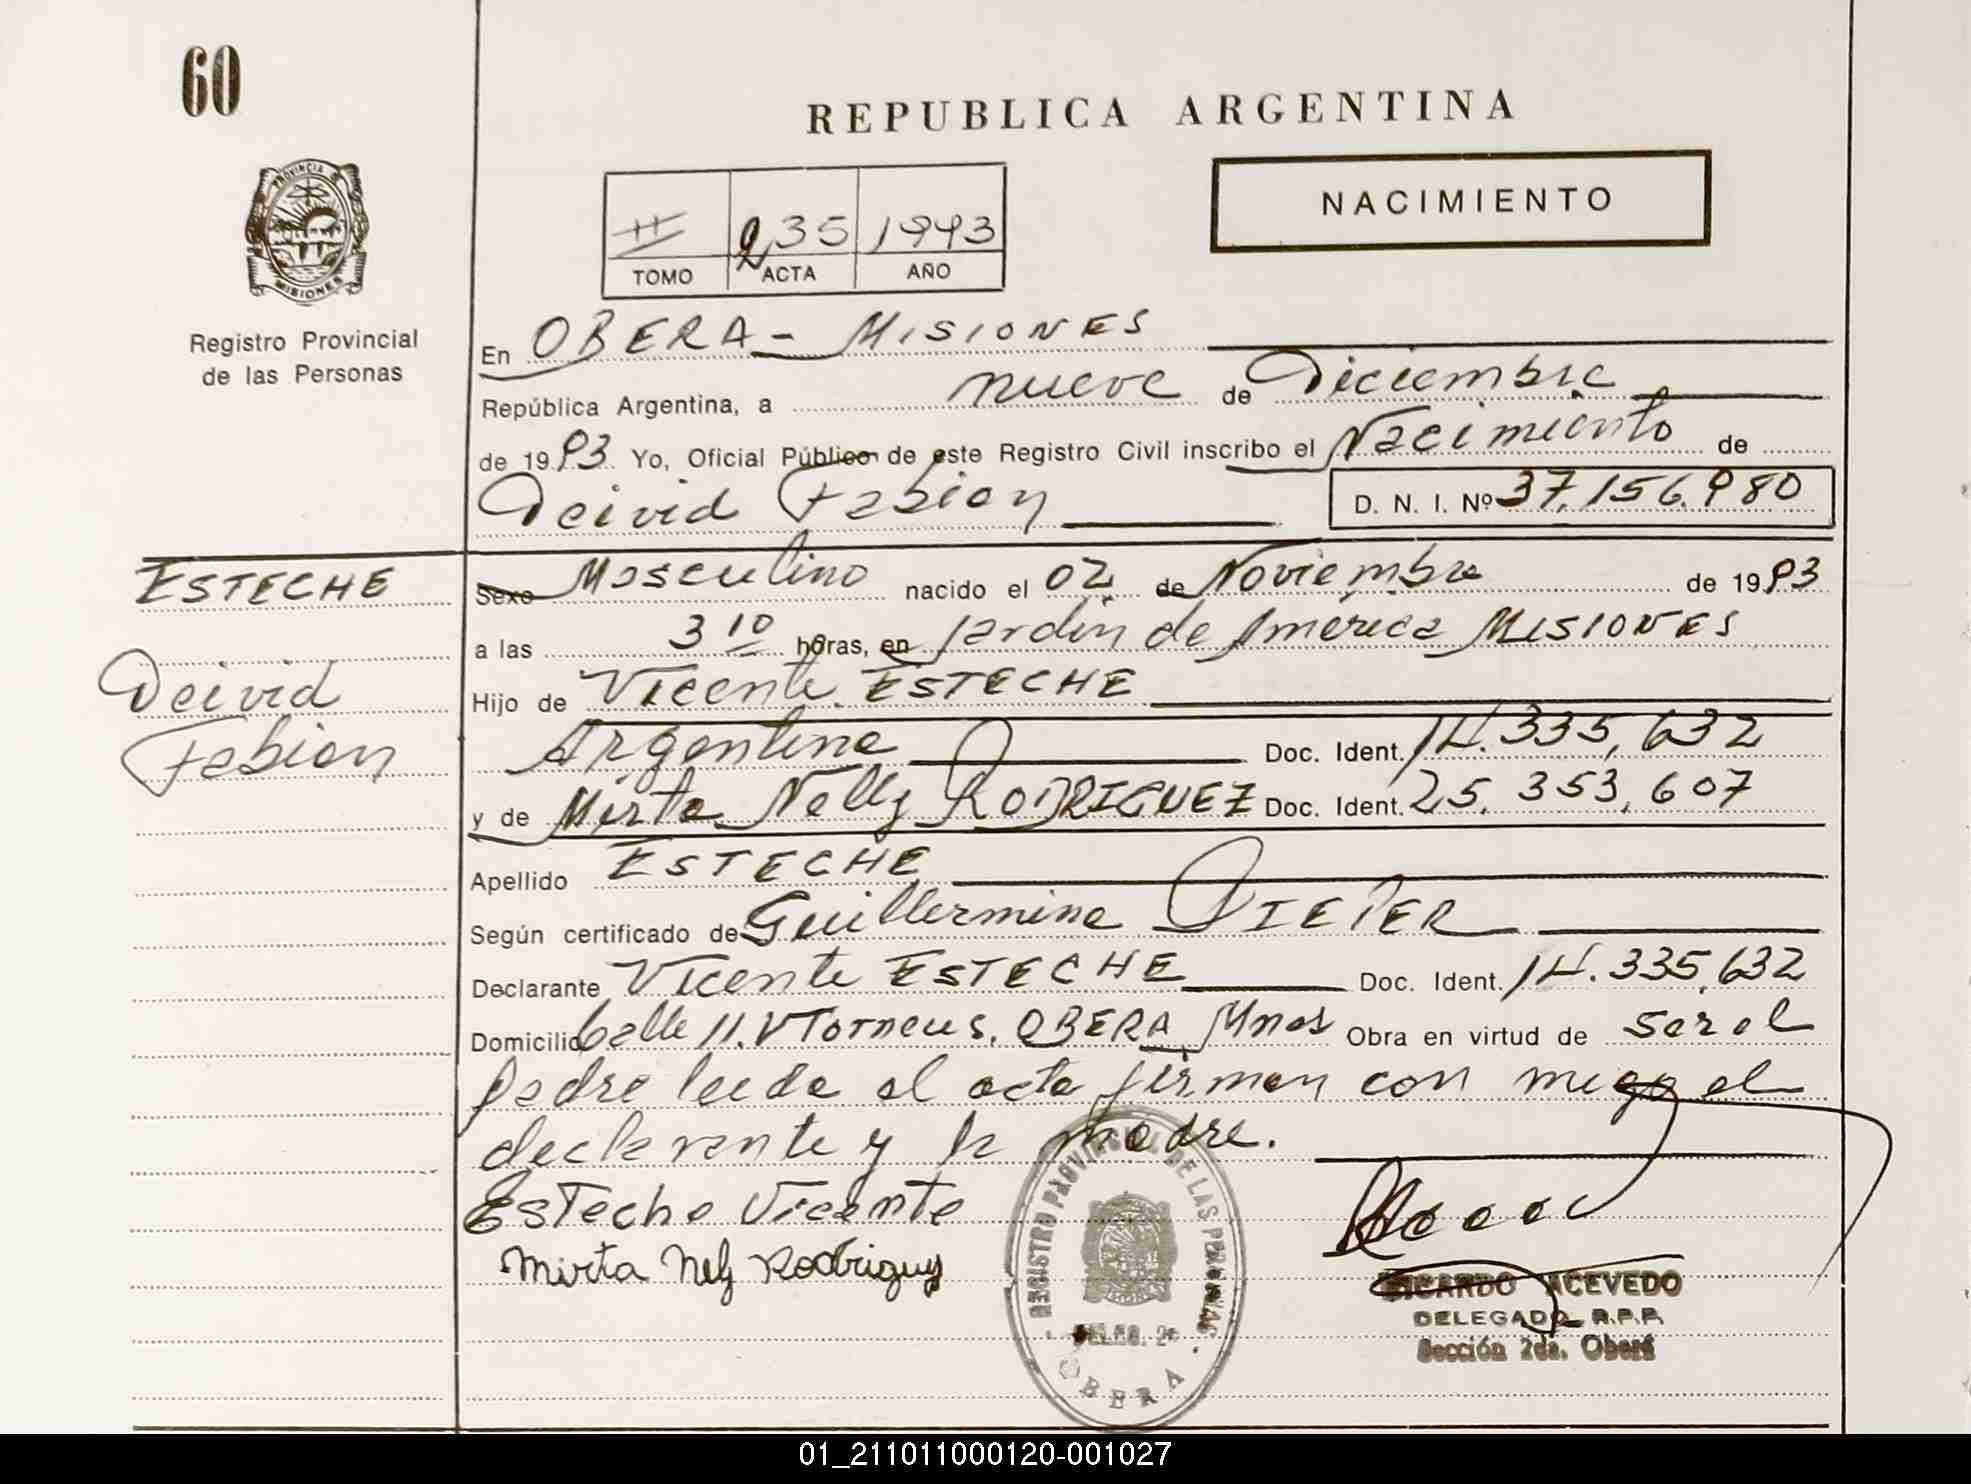 60
REPUBLICA ARGENTINA
PROVINCIA DE MISIONES
NACIMIENTO
II 235 1993
TOMO ACTA AÑO
Registro Provincial
de las Personas
En OBERA - MISIONES
República Argentina, a nueve de Diciembre
de 1993 Yo, Oficial Público de este Registro Civil inscribo el Nacimiento de
Deivid Fabian D. N. I. Nº 37.156.980
ESTECHE
Deivid
Fabian
Sexo Masculino nacido el 02 de Noviembre de 1993
a las 3 10 horas, en Jardín de América MISIONES
Hijo de Vicente ESTECHE
Argentina Doc. Ident. 14.335,632
y de Mirta Nelly RODRIGUEZ Doc. Ident. 25.353,607
Apellido ESTECHE
Según certificado de Guillermina PIEPER
Declarante Vicente ESTECHE Doc. Ident. 14.335,632
Domicilio Calle 11. OBERA Mnes Obra en virtud de ser el
padre leida el acta firman con migo el
declarante y la madre.
Esteche Vicente
Mirta Nely Rodriguez
REGISTRO PROVINCIAL DE LAS PERSONAS
OBERA
RICARDO ACEVEDO
DELEGADO R.P.P.
Sección 2da. Oberá
01_211011000120-001027